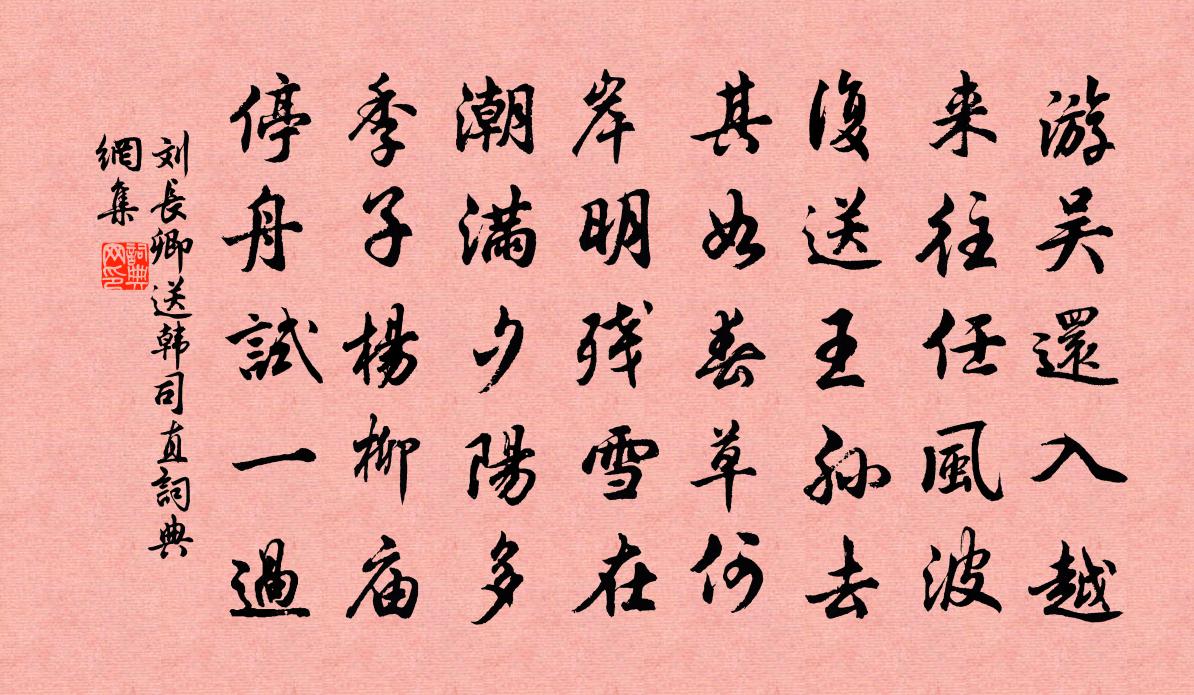 游吴還入越
来往任風波
復送王孙去
其如春草何
岸明残雪在
潮满夕陽多
季子楊柳庙
停舟試一過
刘長卿送韩司直詞典
網集
詞典
网印